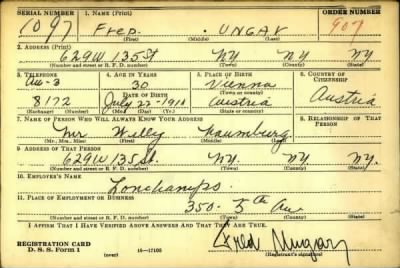 SERIAL NUMBER 1. NAME (Print) ORDER NUMBER
1097 FRED. UNGAR 907
(First) (Middle) (Last)
2. ADDRESS (Print)
629 W 135 St NY NY. NY
(Number and street or R. F. D. number) (Town) (County) (State)
3. TELEPHONE 4. AGE IN YEARS 5. PLACE OF BIRTH 6. COUNTRY OF CITIZENSHIP
Au-3 30 Vienna
DATE OF BIRTH (Town or county)
8172 July 22-1910 Austria Austria
(Exchange) (Number) (Mo.) (Day) (Yr.) (State or country)
7. NAME OF PERSON WHO WILL ALWAYS KNOW YOUR ADDRESS 8. RELATIONSHIP OF THAT PERSON
Mr Willy Naumburg
(Mr., Mrs., Miss) (First) (Middle) (Last)
9. ADDRESS OF THAT PERSON
629 W 135 St. NY. NY. NY.
(Number and street or R. F. D. number) (Town) (County) (State)
10. EMPLOYER'S NAME
Longchamps.
11. PLACE OF EMPLOYMENT OR BUSINESS
350. 5th Av
(Number and street or R. F. D. number) (Town) (County) (State)
I AFFIRM THAT I HAVE VERIFIED ABOVE ANSWERS AND THAT THEY ARE TRUE.
REGISTRATION CARD Fred Ungar
D. S. S. Form 1 (over) 16-17105 (Registrant's signature)